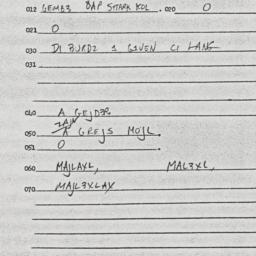 012 GEMB3 DAP SMARK KOL. 020 O
021 O
030 DI BURDZ 1 GIVEN CI LANG
031
040 A GEJD3R
050 A GREJS MOJL.
051 O .
060 MAJLAXL, MAL3XL,
070 MAJL3XLAX